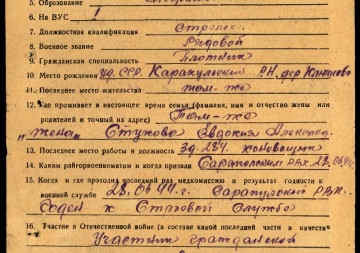 5. Образование
6. На ВУС 1
7. Должностная квалификация Стрелок
8. Военное звание Рядовой
9. Гражданская специальность Плотник
10. Место рождения Уд. ССР. Каракулинский р.н. дер
11. Последнее место жительства там-же
12. Где проживает в настоящее время семья (фамилия, имя и отчество жены или
родителей и точный их адрес) Там-же
"жена" Стухова Евдокия
13. Последнее место работы и должность коновощик
14. Каким райгорвоенкоматом и когда призван Сарапульским РВК.
15. Когда и где проходил последний раз медкомиссию и результат годности к
военной службе 23.04.44.г. Сарапульский РВК.
Годен к Строевой Службе
16. Участие в Отечественной войне (в составе какой последней части в качестве
Участник гражданской